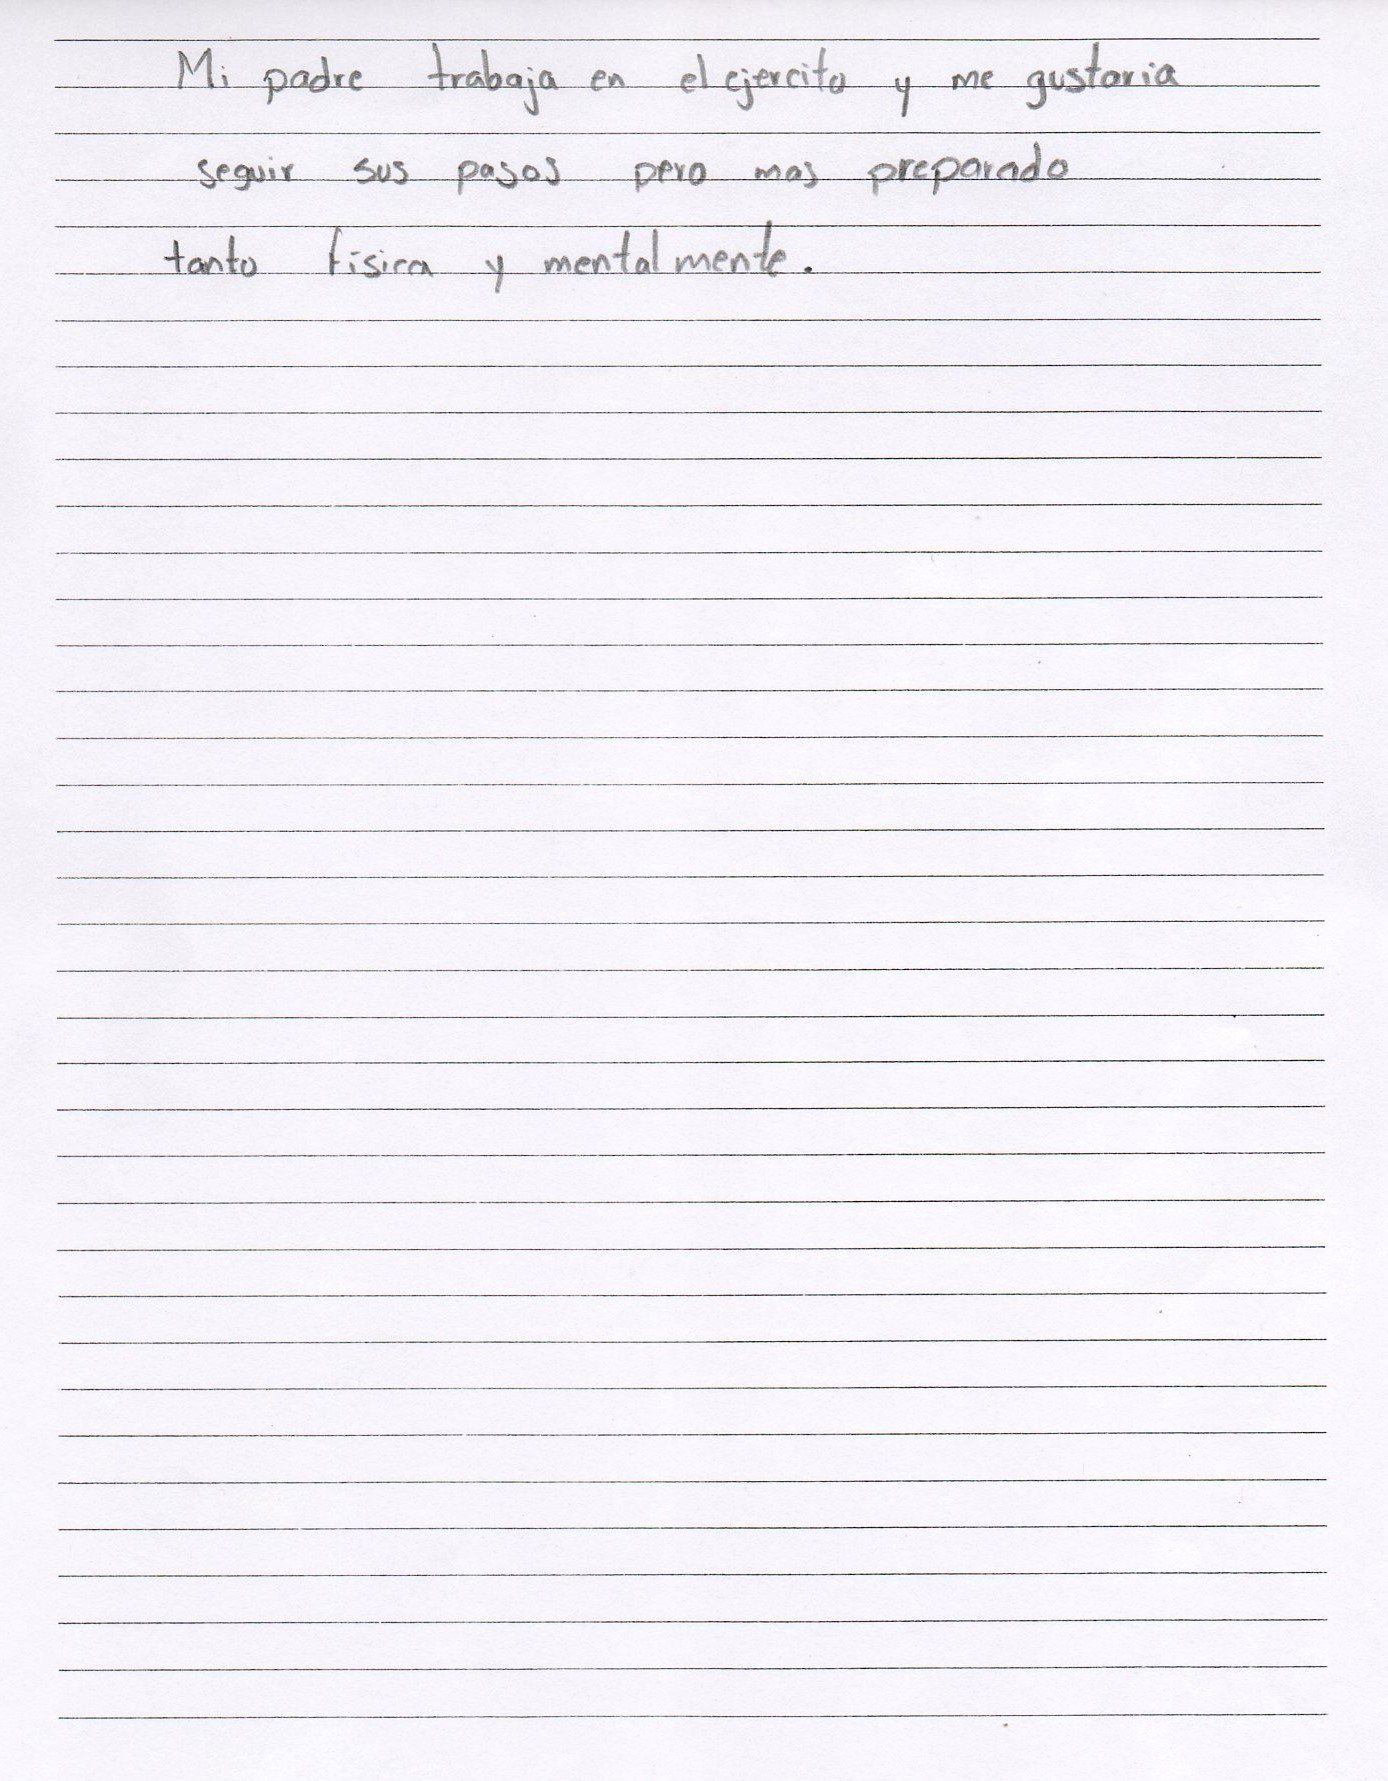 Mi padre trabaja en el ejercito y me gustaria
seguir sus pasos pero mas preparado
tanto fisica y mentalmente.